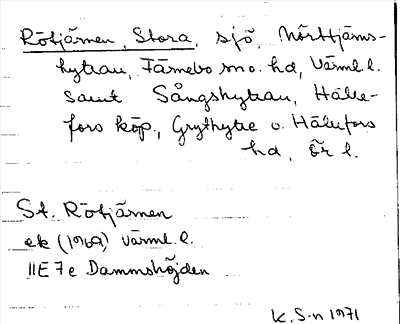 Rötjärnen, Stora, sjö, Norttjärns-
hyttan, Färnebo sn o. hd, Värml. l.
samt Sångshyttan, Hälle-
fors köp., Grythytte o. Hällefors
hd, Ör l.
St. Rötjärnen
ek (1969) Värml. l.
11E 7e Dammshöjden
K. S-n 1971